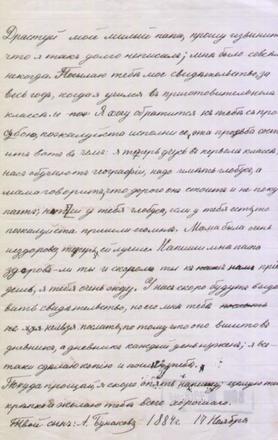 Драстуй мой милый папа, прошу извинить
что я такъ долго неписалъ; мнѣ было совсѣмъ
некогда. Посылаю тебѣ мое свидѣтельство за
весь годъ, когда я учился въ приготовительномъ
классѣ
я хочу обратится къ тебѣ съ про
сьбою, пожалуйста исполни ее, эта прозьба состо
итъ вотъ въ чемъ: я теперь ужъ въ первомъ классѣ,
насъ обучаютъ географіи, надо имѣть глобусъ, а
мама говоритъ, что дорого онъ стоитъ и не поку
паетъ; у тебя глобуса, если у тебя есть, то
пожалуйста пришли его мнѣ. Мама была очень
нездорова, теперь ей лучше. Напиши мнѣ папа
здоровъ-ли ты и скоро ли ты къ намъ прі
дешь, я тебя очень жду. У насъ скоро будутъ выда
вать свидѣтельство, но его мнѣ тебѣ
нельзя послать, потому что оно вшито въ
дневникъ, а дневникъ каждый день нуженъ; я все
таки сдѣлаю копію и пошлю тебѣ.
Покуда прощай, я скоро опять напишу цѣлую тебя
крѣпко и желаю тебѣ всего хорошаго.
Твой сынъ: А. Бунаковъ 1884 г. 17 Ноября